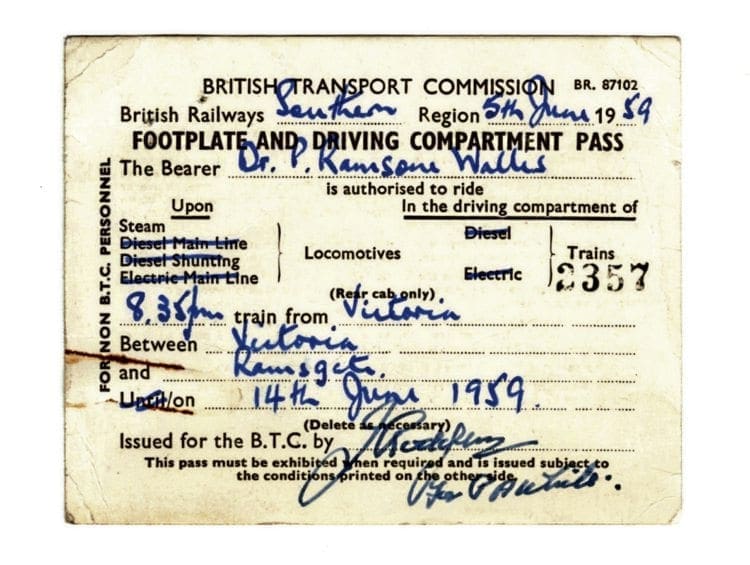 BRITISH TRANSPORT COMMISSION BR. 87102
British Railways Southern Region 5th June 19 59
FOOTPLATE AND DRIVING COMPARTMENT PASS
The Bearer Dr. P. Ramsome Wallis
is authorised to ride
Upon In the driving compartment of
Steam Diesel
Diesel Main Line
Diesel Shunting Locomotives Trains
Electric Main Line Electric 2357
(Rear cab only)
8.35pm train from Victoria
Between Victoria
and Ramsgate.
Until/on 14th June 1959.
(Delete as necessary)
Issued for the B.T.C. by
This pass must be exhibited when required and is issued subject to
the conditions printed on the other side.
FOR NON B.T.C. PERSONNEL